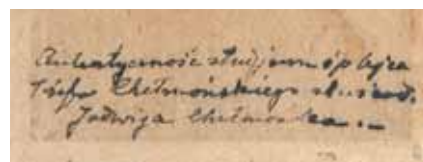 Autentyczność studjum ś p Ojca
Józefa Chełmońskiego stwierdz.
Jadwiga Chełmońska